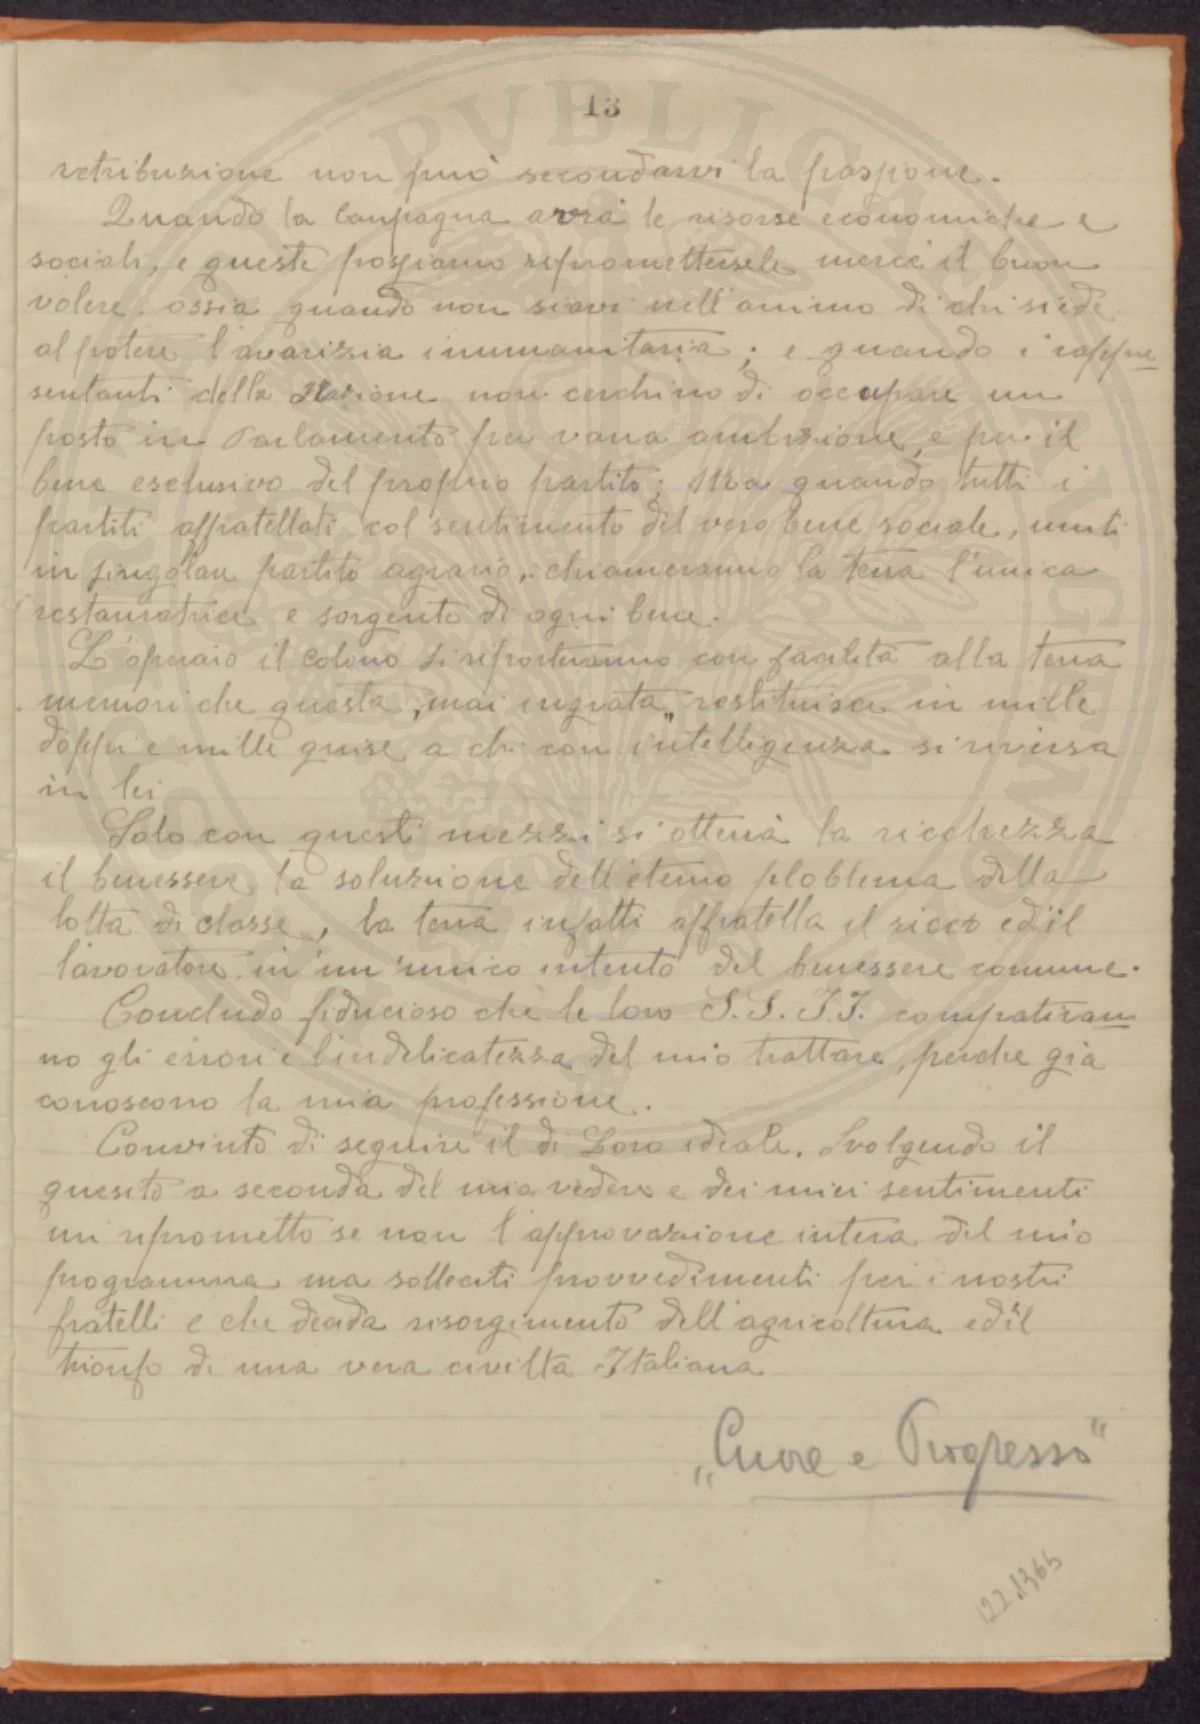 13
retribuzione non può secondarvi la passione.
Quando la Campagna avrà le risorse economiche e
sociali, e queste possiamo ripromettersele mercè il buon
volere. ossia quando non siavi nell'animo di chi siede
al potere l'avarizia inumanitaria; e quando i rappre
sentanti della Nazione non cerchino di occupare un
posto in Parlamento per vana ambizione, e per il
bene esclusivo del proprio partito; Ma quando tutti i
partiti affratellati col sentimento del vero bene sociale, uniti
in singolar partito agrario, chiameranno la terra l'unica
restauratrice e sorgente di ogni bene.
L'operaio il colono si riporteranno con facilità alla terra
memori che questa "mai ingrata" restituisce in mille
doppi e mille guise, a chi con intelligenza si riversa
in lei
Solo con questi mezzi si otterrà la ricchezza
il benessere, la soluzione dell'eterno ploblema della
lotta di classe, la terra infatti affratella il ricco ed il
lavoratore. in un'unico intento del benessere comune.
Concludo fiducioso che le loro S.S. I.I. compatiran
no gli errori e l'indelicatezza del mio trattare, perche già
conoscono la mia professione.
Convinto di seguire il di Loro ideale. Svolgendo il
quesito a seconda del mio vedere e dei miei sentimenti
mi riprometto se non l'approvazione intera del mio
programma ma solleciti provvedimenti per i nostri
fratelli e che decida risorgimento dell'agricoltura ed il
trionfo di una vera civiltà Italiana
"Cuore e Progresso"
122.1365